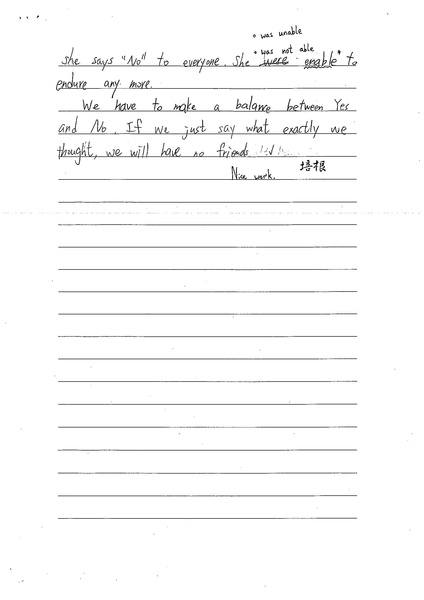 • was unable
• was not able
she says "No" to everyone. She were enable* to
endure any more.
We have to make a balance between Yes
and No. If we just say what exactly we
thought, we will have no friends
Nice work. 培根